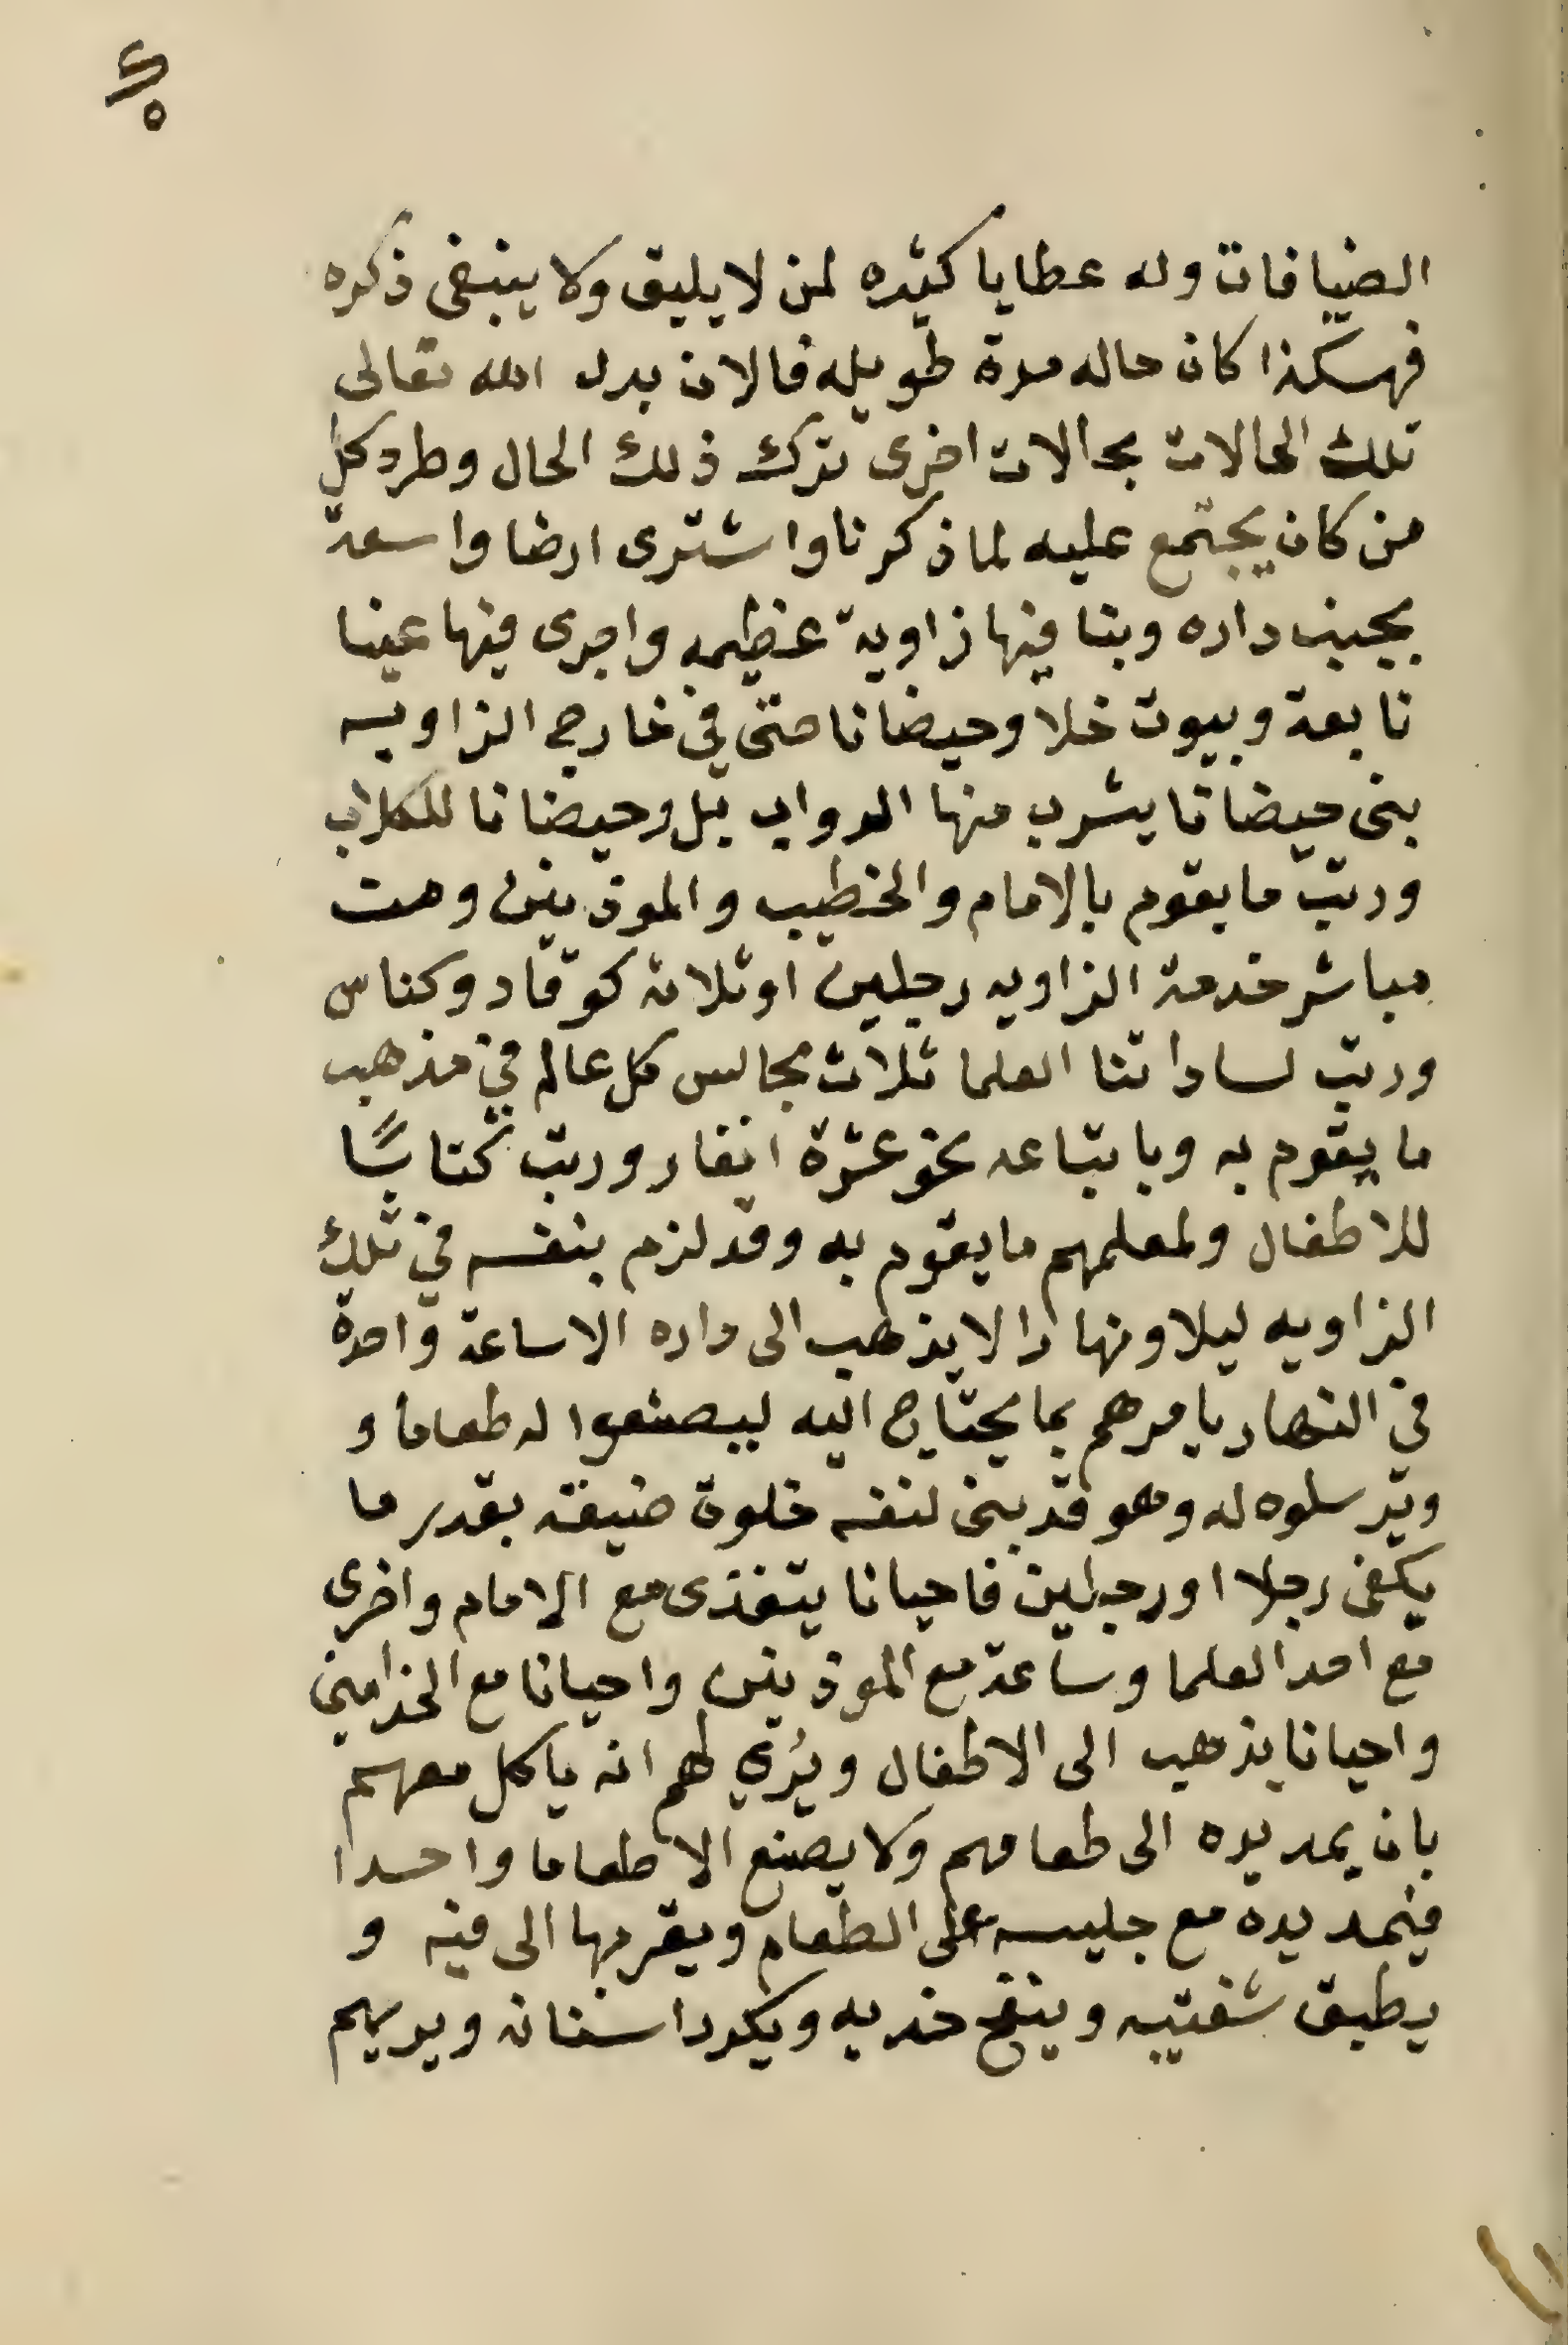 الضيافات وله عطايا كثيره لمن لا يليق ولا ينبغى ذكره
فهكذا كان حاله مدة طويله فالان بدل الله تعالى
تلك الحالات بحالات اخرى ترك ذلك الحال وطرد كل
من كان يجتمع عليه لما ذكرنا واشترى ارضا واسعة
بجنب داره وبنا فيها زاوية عظيمه واجرى فيها عينا
نابعة وبيوت خلا وحيضانا حتى في خارج الزاويه
بنى حيضانا يشرب منها الدواب بل وحيضانا للكلاب
ورتب ما يقوم بالامام والخطيب والموذنين ومن
مباشر خدمة الزاويه رجلين او ثلاثه كوقاد وكناس
ورتب لساداتنا العلما ثلاث مجالس كل عالم في مذهب
ما يقوم به وباتباعه نحو عشرة انفار ورتب كتابًا
للاطفال ولمعلمهم ما يقوم به وقد لزم بنفسه في تلك
الزاويه ليلا ونهارا لا يذهب الى داره الا ساعة واحدة
في النهار يامرهم بما يحتاج اليه ليصنعوا له طعاما و
ويرسلوه له وهو قد بنى لنفسه خلوة ضيقه بقدر ما
يكفى رجلا او رجلين فاحيانا يتغذى مع الامام واخرى
مع احد العلما وساعة مع الموذنين واحيانا مع الخدامين
واحيانا يذهب الى الاطفال ويُري لهم انه ياكل معهم
بان يمد يده الى طعامهم ولا يصنع الا طعاما واحدا
فيمد يده مع جليسه على الطعام ويقربها الى فيه و
يطبق شفتيه وينفخ خديه ويكرد اسنانه ويريهم